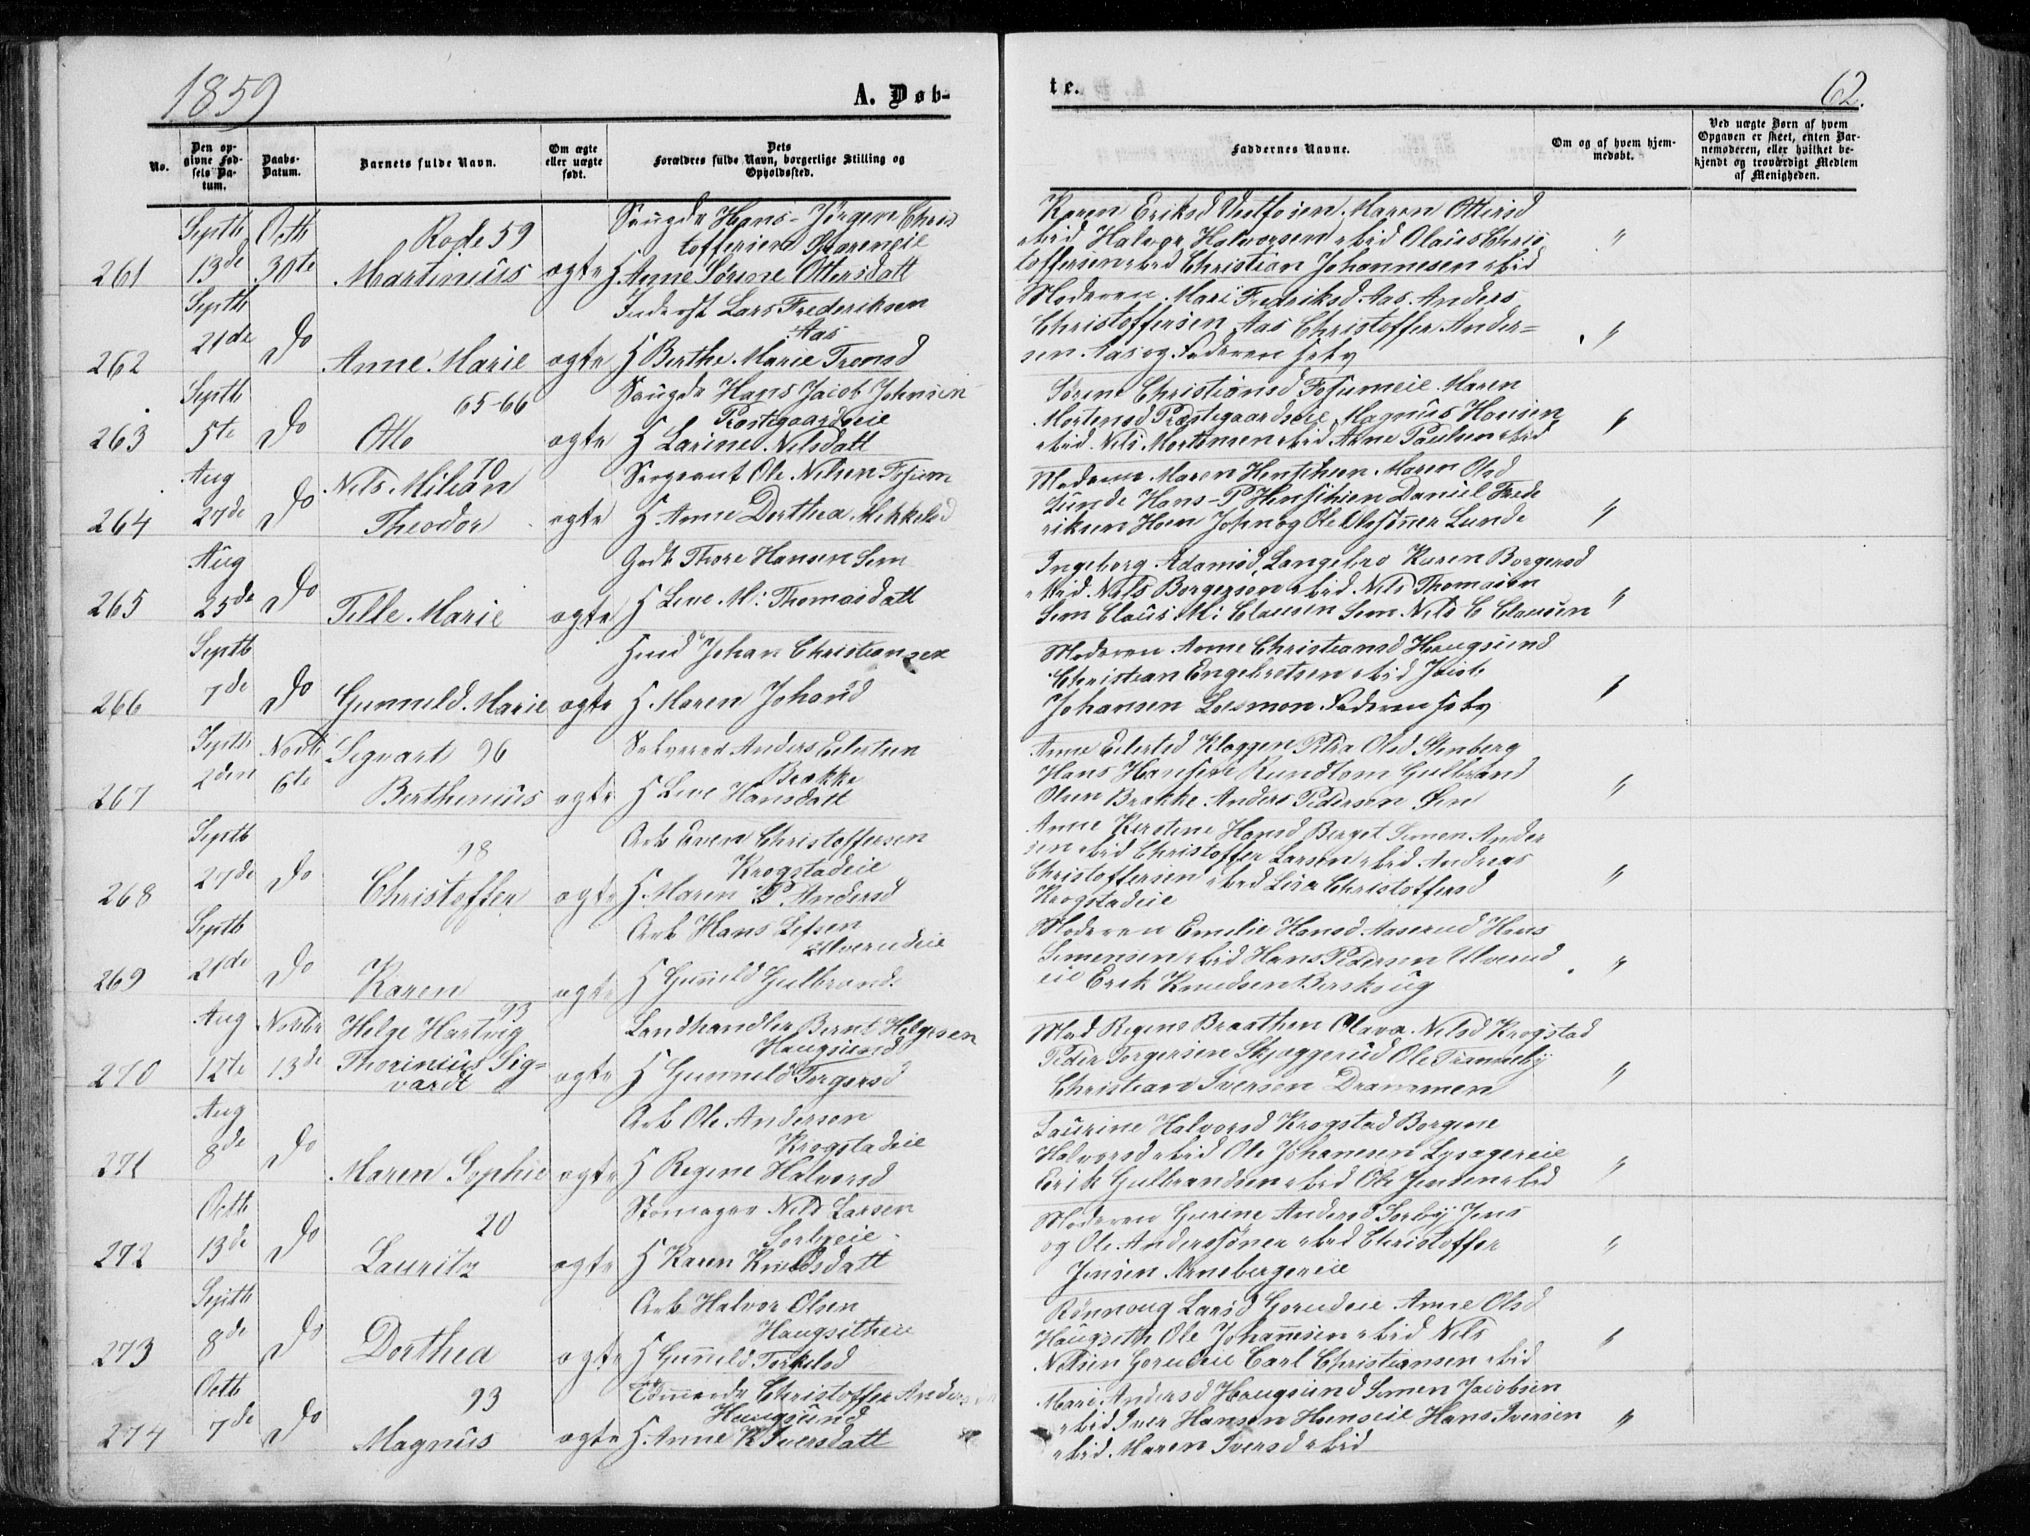 1859
A. Døb-
te.
62.
No.
Den op-
givne Fød-
sels Da-
tum.
Daabs-
Datum.
Barnets fulde Navn.
Om ægte
eller uægte
født.
Dets
Forældres fulde Navn, borgerlige Stilling og
Opholdssted.
Faddernes Navne.
Om og af hvem hjem-
medøbt.
Ved uægte Børn af hvem
Opgaven er skeet, enten Bar-
nemoderen, eller hvilket be-
kjendt og troværdigt Medlem
af Menigheden.
261
Septb 13de
Octb 30te
Rode 59
Martinius
ægte
Saugdr Hans Jørgen Chris
toffersen
H Anne Sørine Ottersdatt
Karen Eriksd Vestfosen Maren Ottersd
ibid Halvor Halvorsen ibid Olaus Chris
toffersen ibid Christian Johannesen ibid
"
262
Septb 21de
Do
Anne Marie
ægte
Inderst Lars Frederiksen
Aas
H Berthe Marie
Moderen Mari Fredriksd Aas Anders
Christoffersen Aas Christoffer Ander=
sen Aas og Faderen selv
"
263
Septb 5te
Do
65-66
Otto
ægte
Saugdr Hans Jacob Johnsen
Præstegaardseie
H Larine Nilsdatt
Sørine Christiansd Fossumeie Maren
Mortensd Præstegaardseie Magnus Hansen
ibid Nils Mortensen ibid Arne Paulsen ibid
"
264
Aug 27de
Do
70
Nils Milian
Theodor
ægte
Sergeant Ole Nilsen Fossum
H Anne Dorthea Mikkelsd
Moderen Maren Maren Olsd
Lunde Hans P Daniel Frede
riksen Hoen John og Ole Olssønner Lunde
"
265
Aug 25de
Do
Tille Marie
ægte
Gdb Thore Hansen Sem
H Live M: Thomasdatt
Ingeborg Adamsd Langebro Karen Borgersd
ibid Nils Borgersen ibid Nils Thomasen
Sem Claus M: Clausen Sem Nils C Clausen
"
266
Septb 7de
Do
Gunnild Marie
ægte
Johan Christiansen
H Maren Johansd
Moderen Anne Christiansd Haugsund
Christian Engebretsen ibid Jacob
Johansen Loesmoen Faderen selv
"
267
Septb 2den
Novb 6te
Segvart 96
Berthinius
ægte
Selveier Anders Eilertsen
Brække
H Live Hansdatt
Anne Eilertsd Kloggen Petra Olsd Stenberg
Hans Hansen Rundtom Gulbrand
Olsen Brække Anders Pedersen Sem
"
268
Septb 27de
Do
98
Christoffer
ægte
Arb Even Christoffersen
Krogstadeie
H Maren P. Andersd
Anne Kerstine Hansd Berget Simen Ander
sen ibid Christoffer Larsen ibid Andreas
Christoffersen ibid Lise Christoffersd
Krogstadeie
"
269
Septb 21de
Do
Karen
ægte
Arb Hans
Ulverudeie
H Gunnild Gulbrand.
Moderen Emilie Hansd Aaserud Hans
Simensen ibid Hans Pedersen Ulverud
eie Erik Knudsen Berskoug
"
270
Aug 12te
Novbr 13de
93
Helge Hartvig
Thorinius Sig=
vardt
ægte
Landhandler Bernt Helgesen
Haugsund
H Gunnild Torgersd
Mad Regine Braathen Olava Nilsd Krogstad
Peder Torgersen Skjæggerud Ole Tranneby
Christian Iversen Drammen
"
271
Aug 8de
Do
Maren Sophie
ægte
Arb Ole Andersen
Krogstadeie
H Regine Halvorsd
Laurine Halvorsd Krogstad Borgine
Halvorsd ibid Ole Johansen
Erik Gulbrandsen ibid Ole Jensen ibid
"
272
Octb 13de
Do
20
Lauritz
ægte
Skomager Nils Larsen
Sorbyeie
H Karen Knudsdatt
Moderen Gurine Andersd Sorby Jens
og Ole Anderssønner ibid Christoffer
Jensen Arnebergeeie
"
273
Septb 8de
Do
Dorthea
ægte
Arb Halvor Olsen
H Gunnild Torkilsd
Rønnoug Larsd Gorudeie Anne Olsd
Ole Johannesen ibid Nils
Nilsen Gorudeie Carl Christiansen ibid
"
274
Octb 7de
Do
93
Magnus
ægte
Christoffer Anders
Haugsund
H. Anne K Iversdatt
Mari Andersd Haugsund Simen Jacobsen
ibid Iver Hansen Hoenseie Hans Iversen
ibid Maren Iversd ibid
"